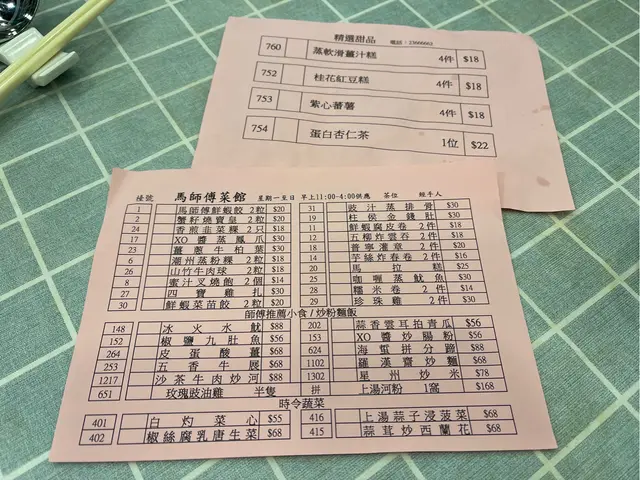 精選甜品 電話：23666662
760 蒸軟滑薑汁糕 4件 $18
752 桂花紅豆糕 4件 $18
753 紫心蕃薯 4件 $18
754 蛋白杏仁茶 1位 $22
檯號 馬師傅菜館 星期一至日 早上11:00-4:00供應 茶位 經手人
1 馬師傅鮮蝦餃 2粒 $20 31 豉汁蒸排骨 $30
2 蟹籽燒賣皇 2粒 $20 19 柱侯金錢肚 $30
24 香煎韭菜粿 2只 $18 11 鮮蝦腐皮卷 2件
17 XO醬蒸鳳爪 $30 12 五柳炸雲吞 2件 $18
23 薑蔥牛柏葉 $30 18 普寧灌章 2件 $20
6 潮州蒸粉粿 2粒 $18 14 芋絲炸春卷 2件 $16
26 山竹牛肉球 2粒 $18 20 馬拉糕 $25
8 蜜汁叉燒飽 2個 $14 25 咖喱蒸魷魚 $30
27 四寶雞扎 $30 28 糯米卷 2件 $14
30 鮮蝦菜苗餃 2粒 $20 29 珍珠雞 2件 $30
師傅推薦小食/炒粉麵飯
148 冰火水魷 $88 202 蒜香雲耳拍青瓜 $56
152 椒鹽九肚魚 $56 153 XO醬炒腸粉 $56
264 皮蛋酸薑 $68 624 海蜇拼分蹄 $88
253 五香牛展 $68 1102 羅漢齋炒麵 $68
1217 沙茶牛肉炒河 $88 1302 星州炒米 $78
651 玫瑰豉油雞 半隻 拼 上湯河粉 1窩 $168
時令蔬菜
401 白灼菜心 $55 416 上湯蒜子浸菠菜 $68
402 椒絲腐乳唐生菜 $68 415 蒜茸炒西蘭花 $68